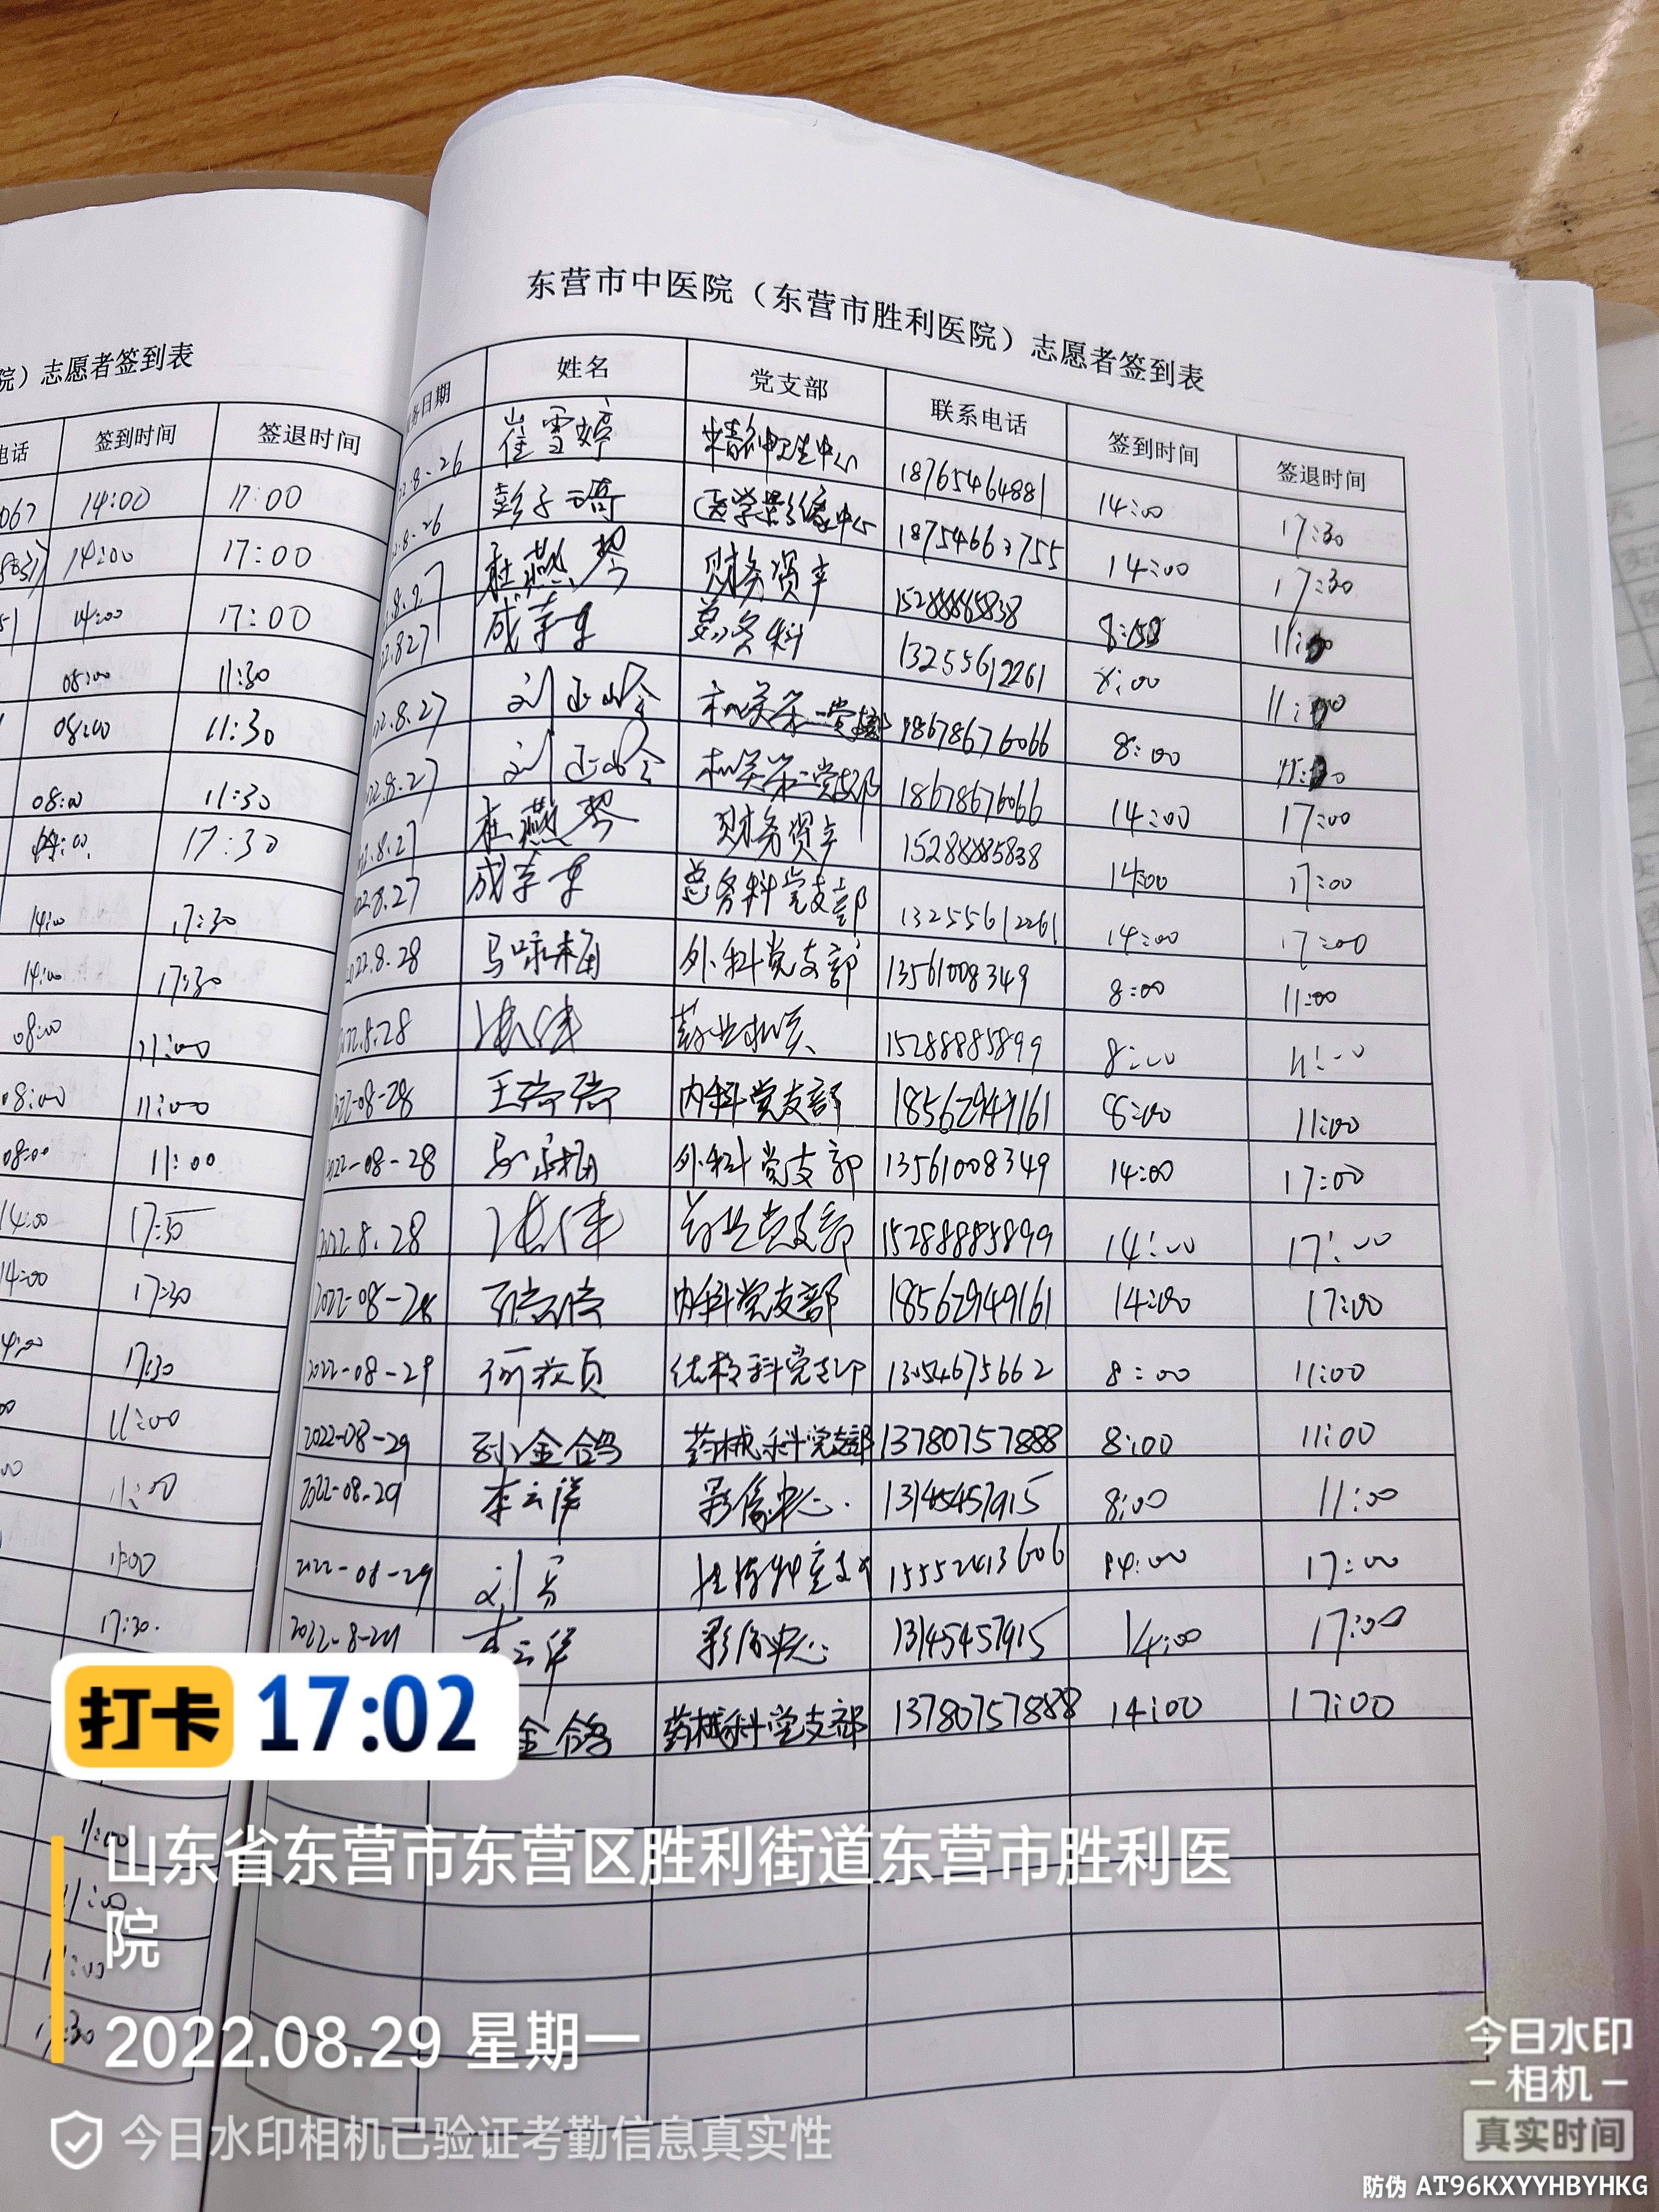 东营市中医院（东营市胜利医院）志愿者签到表
院）志愿者签到表
日期 姓名 党支部 联系电话 签到时间 签退时间
电话 签到时间 签退时间
14:00 17:00
14:00 17:00
14:00 17:00
08:00 11:30
08:00 11:30
08:00 11:30
17:30
14:00 17:30
14:00 17:30
08:00 11:00
08:00 11:00
08:00 11:00
14:00 17:30
14:00 17:30
17:30
11:00
11:00
11:00
17:30
11:00
11:00
11:00
17:30
8-26 崔雪婷 精神卫生中心 18765464881 14:00 17:30
8-26 彭子 医学影像中心 18754663755 14:00 17:30
8.27 杜燕琴 财务资产 15288885838
827 科 13255612261 8:00
8.27 刘 机关第一党支部 18678676066 8:00
8.27 刘 机关第一党支部 18678676066 14:00 17:00
8.27 杜燕琴 财务资产 15288885838 14:00 17:00
8.27 总务科党支部 13255612261 14:00 17:00
2022.8.28 马咏梅 外科党支部 13561008349 8:00 11:00
2022.8.28 张伟 15288885899 8:00 11:00
2022-08-28 王 内科党支部 18562949161 8:00 11:00
2022-08-28 马 外科党支部 13561008349 14:00 17:00
2022.8.28 张伟 药业党支部 15288885899 14:00 17:00
2022-08-28 内科党支部 18562949161 14:00 17:00
2022-08-29 13054675662 8:00 11:00
2022-08-29 孙金鸽 药械科党支部 13780757888 8:00 11:00
2022-08-29 李云洋 影像中心 13145457915 8:00 11:00
2022-08-29 刘 15552413606 14:00 17:00
2022-8-29 李云洋 影像中心 13145457915 14:00 17:00
金鸽 药械科党支部 13780757888 14:00 17:00
打卡 17:02
山东省东营市东营区胜利街道东营市胜利医
院
2022.08.29 星期一
今日水印相机已验证考勤信息真实性
今日水印
相机
真实时间
防伪 AT96KXYYHBYHKG